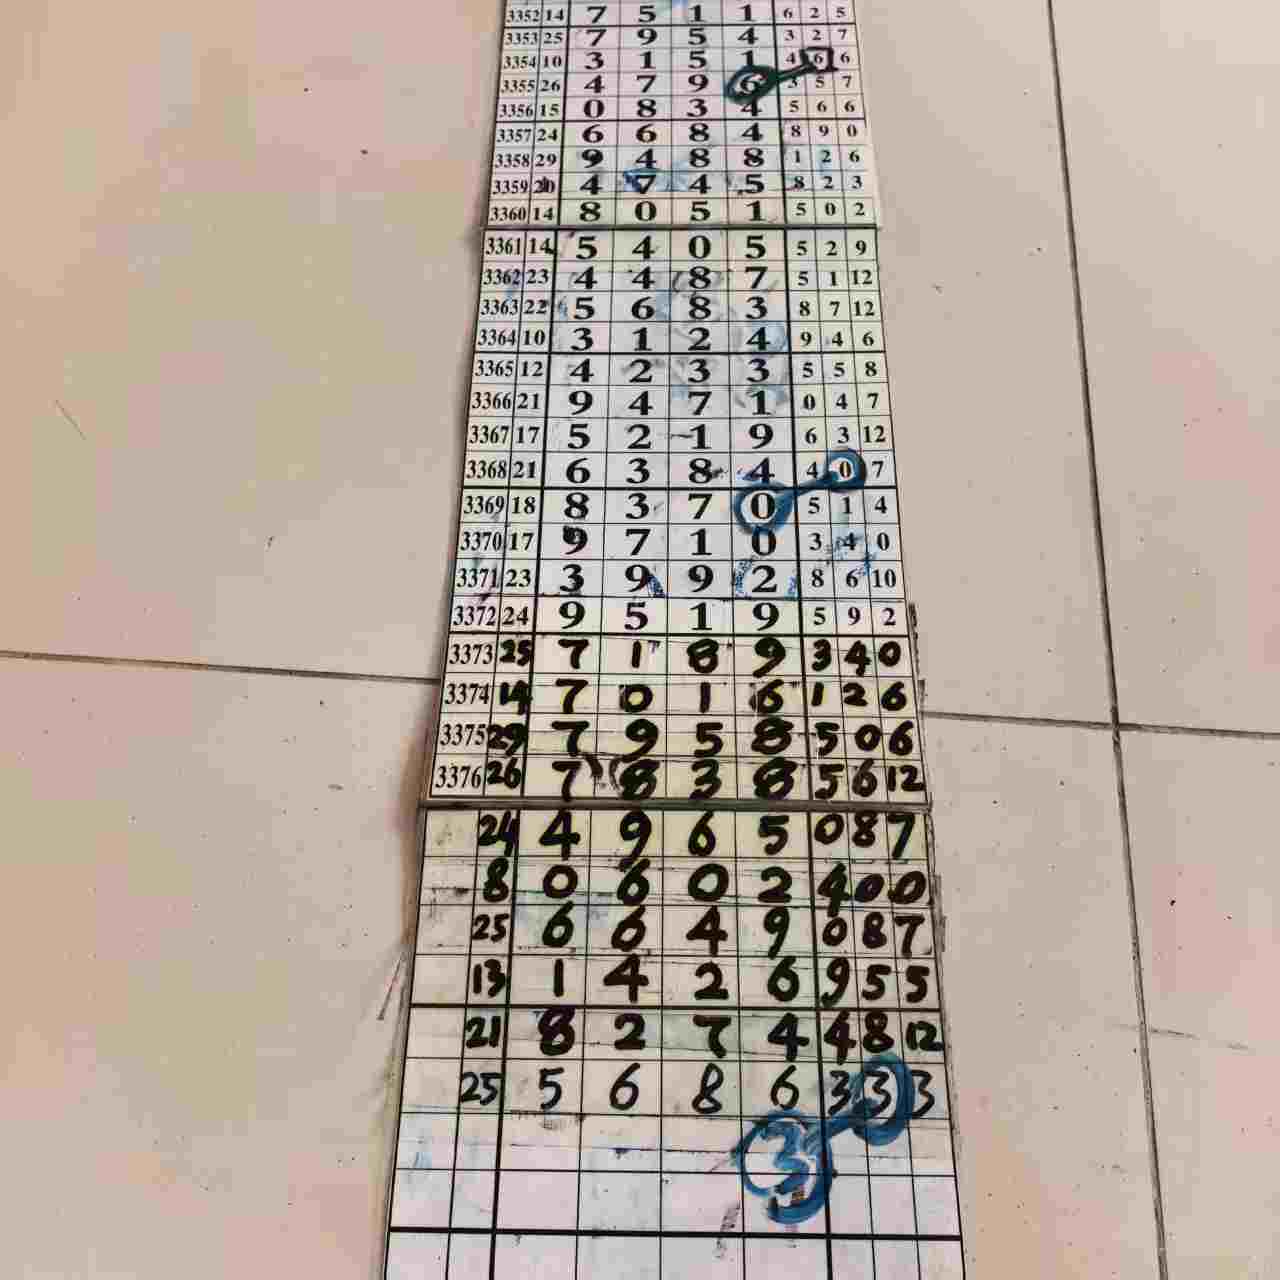 3352 14 7 5 1 1 6 2 5
3353 25 7 9 5 4 3 2 7
3354 10 3 1 5 1 4 6 6
3355 26 4 7 9 6 3 5 7
3356 15 0 8 3 4 5 6 6
3357 24 6 6 8 4 8 9 0
3358 29 9 4 8 8 1 2 6
3359 20 4 7 4 5 8 2 3
3360 14 8 0 5 1 5 0 2
3361 14 5 4 0 5 5 2 9
3362 23 4 4 8 7 5 1 12
3363 22 5 6 8 3 8 7 12
3364 10 3 1 2 4 9 4 6
3365 12 4 2 3 3 5 5 8
3366 21 9 4 7 1 0 4 7
3367 17 5 2 1 9 6 3 12
3368 21 6 3 8 4 4 0 7
3369 18 8 3 7 0 5 1 4
3370 17 9 7 1 0 3 4 0
3371 23 3 9 9 2 8 6 10
3372 24 9 5 1 9 5 9 2
3373 25 7 1 8 9 3 4 0
3374 14 7 0 1 6 1 2 6
3375 29 7 9 5 8 5 0 6
3376 26 7 8 3 8 5 6 12
24 4 9 6 5 0 8 7
8 0 6 0 2 4 0 0
25 6 6 4 9 0 8 7
13 1 4 2 6 9 5 5
21 8 2 7 4 4 8 12
25 5 6 8 6 3 3 3
3